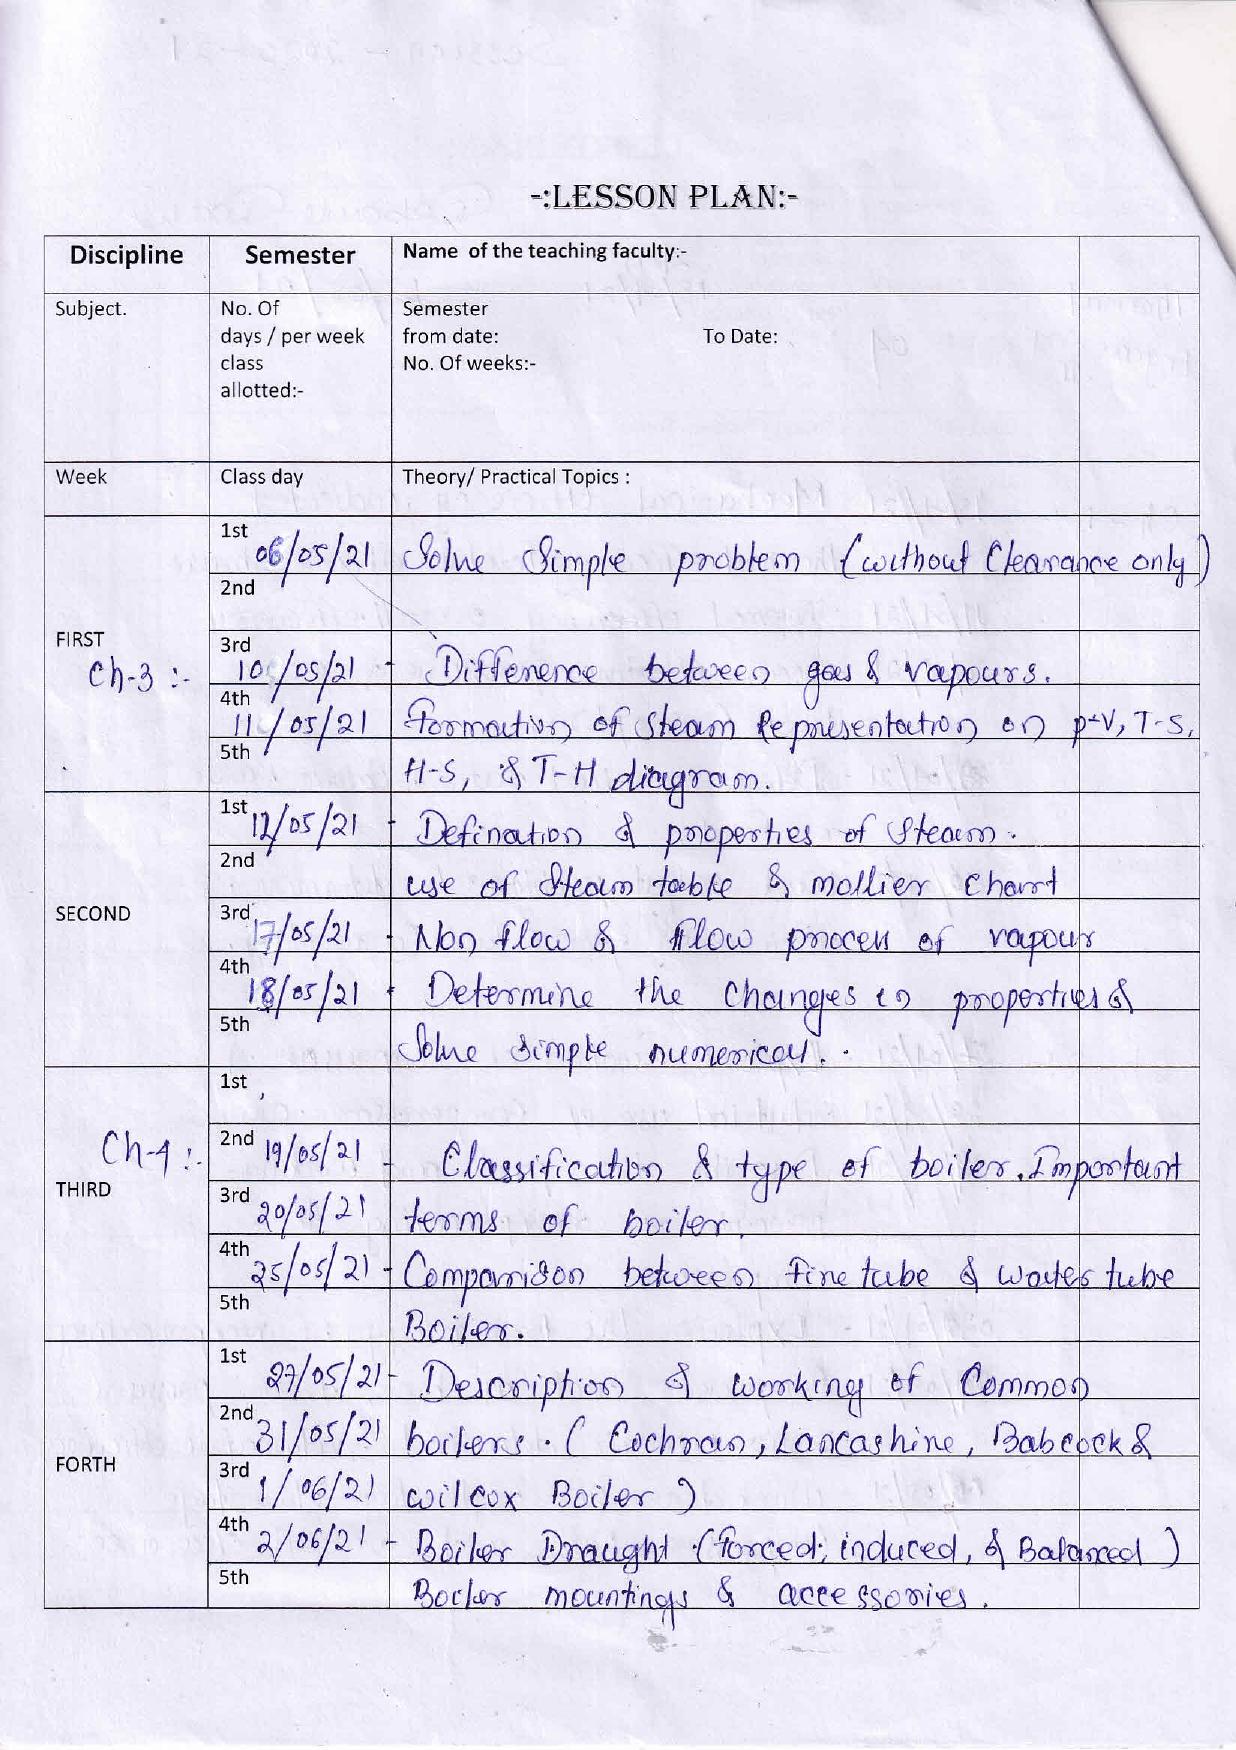 -:LESSON PLAN:-
Discipline Semester Name of the teaching faculty:-
Subject. No. Of Semester
days / per week from date: To Date:
class No. Of weeks:-
allotted:-
Week Class day Theory/ Practical Topics :
1st
06/05/21 Solve Simple problem (without Clearance only)
2nd
FIRST 3rd
Ch-3 :- 10/05/21 - Difference between gas & vapours.
4th
11/05/21 formation of steam Representation on p-V, T-S,
5th
H-S, & T-H diagram.
1st 12/05/21 - Defination & properties of Steam.
2nd
use of Steam table & mollier Chart
SECOND 3rd 17/05/21 - Non flow & flow process of vapour
4th
18/05/21 - Determine the Changes in properties &
5th
Solve simple numerical.
1st
Ch-4 :- 2nd 19/05/21 - Classification & type of boiler. Important
THIRD 3rd 20/05/21 terms of boiler.
4th 25/05/21 - Comparrison between Fire tube & water tube
5th
Boiler.
1st 27/05/21 - Description & working of Common
2nd 31/05/21 boilers. ( Cochran, Lancashine, Babcock &
FORTH 3rd 1/06/21 wilcox Boiler )
4th 2/06/21 - Boiler Draught (forced, induced, & Balanced )
5th Boiler mountings & accessories.